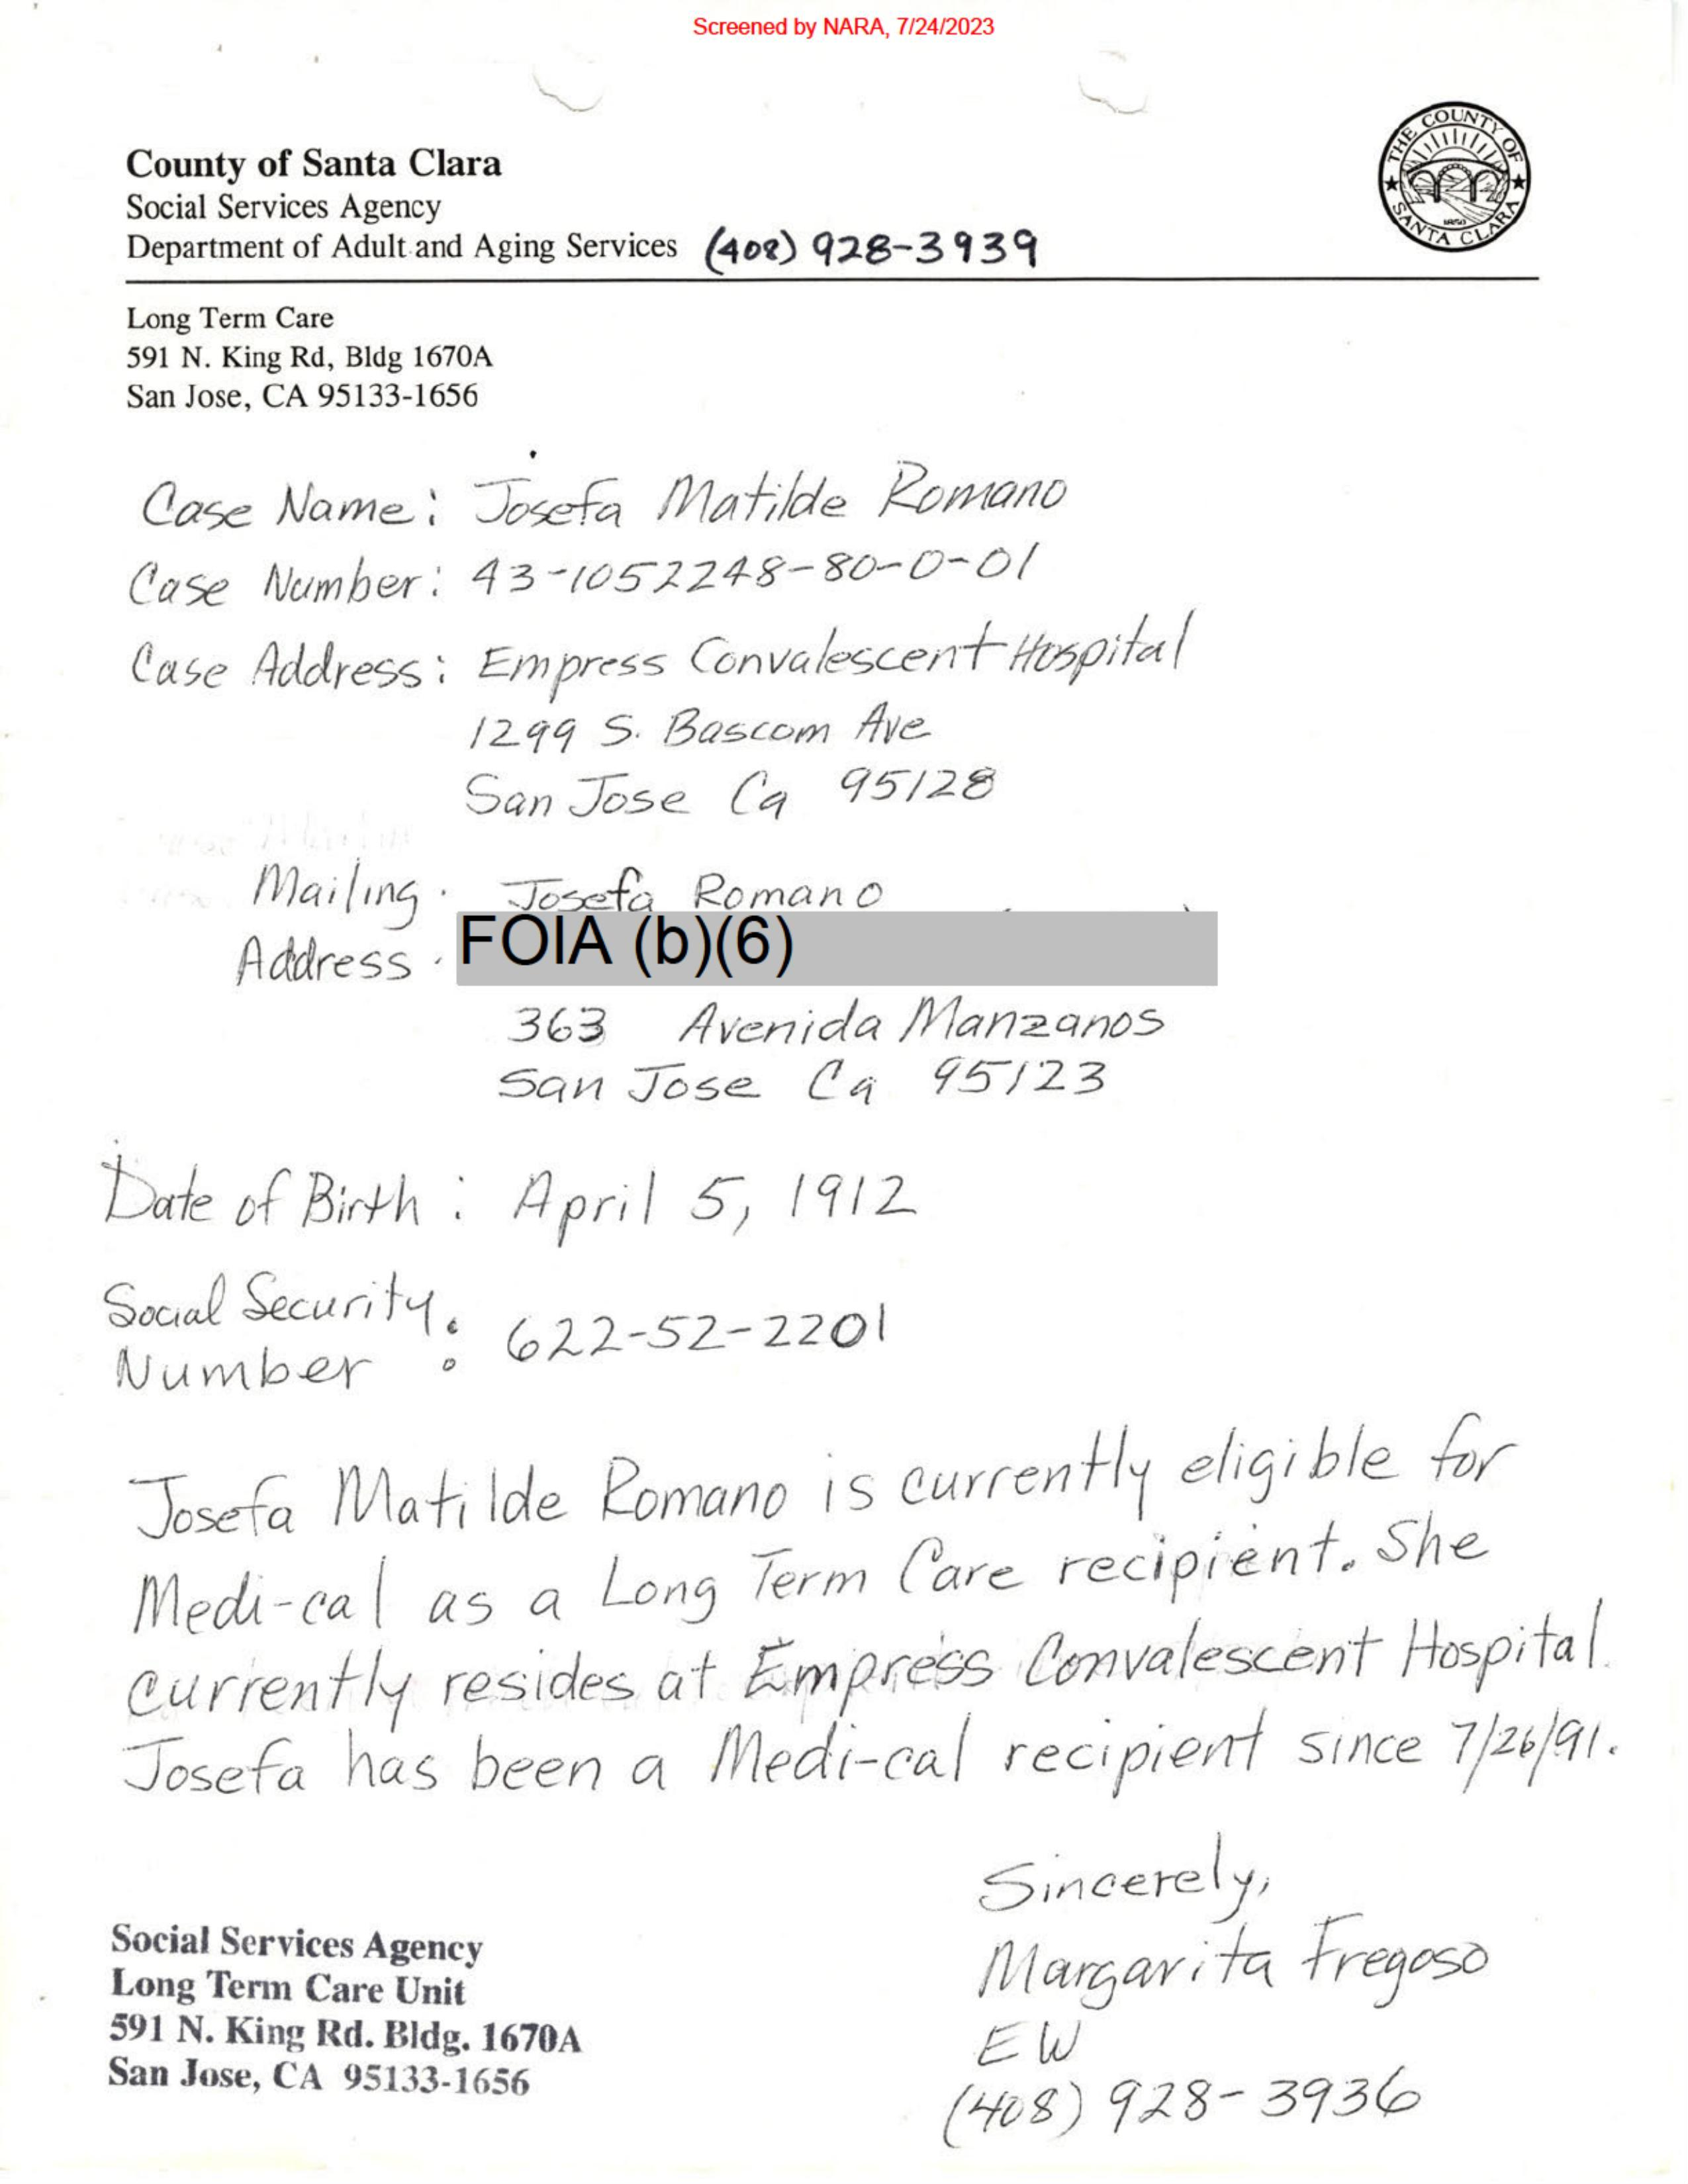 Screened by NARA, 7/24/2023
County of Santa Clara
Social Services Agency
Department of Adult and Aging Services (408) 928-3939
THE COUNTY OF SANTA CLARA
1850
Long Term Care
591 N. King Rd, Bldg 1670A
San Jose, CA 95133-1656
Case Name: Josefa Matilde Romano
Case Number: 43-1052248-80-0-01
Case Address: Empress Convalescent Hospital
1299 S. Bascom Ave
San Jose Ca 95128
Mailing : Josefa Romano
Address : FOIA (b)(6)
363 Avenida Manzanos
San Jose Ca 95123
Date of Birth : April 5, 1912
Social Security
Number : 622-52-2201
Josefa Matilde Romano is currently eligible for
Medi-cal as a Long Term Care recipient. She
currently resides at Empress Convalescent Hospital.
Josefa has been a Medi-cal recipient since 7/26/91.
Sincerely,
Margarita Fregoso
EW
(408) 928-3936
Social Services Agency
Long Term Care Unit
591 N. King Rd. Bldg. 1670A
San Jose, CA 95133-1656